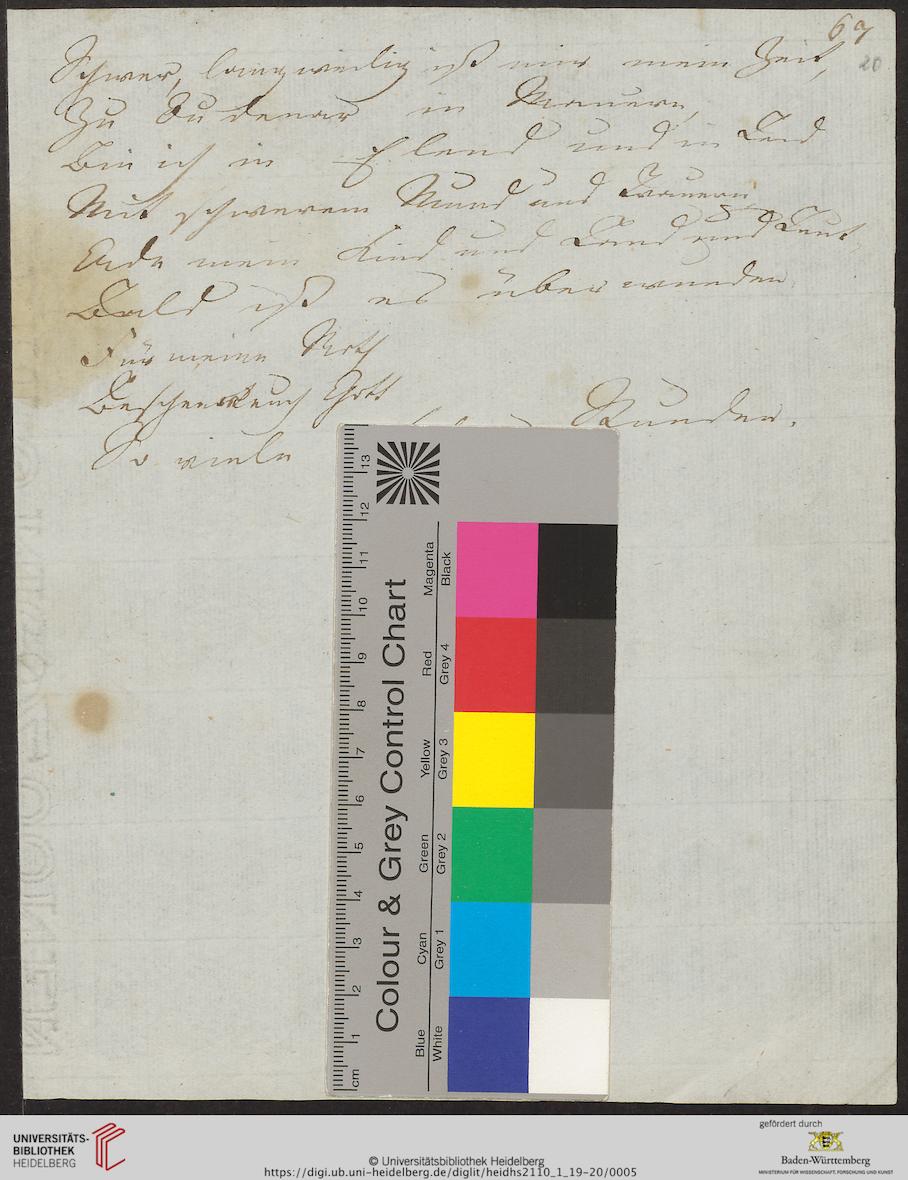 69
20
Schwer, langweilig ist mir mein Zeit,
Zu Oudenar in Mauern,
Bin ich in Elend und in Leid
Mit schwerem Mund und Trauern,
Ade mein Kind und Land und Leut
Bald ist es überwunden
Für meine Noth
Beschee euch Gott
So viele Stunden.
13
12
11
10
9
8
7
6
5
4
3
2
1
cm
Colour & Grey Control Chart
Magenta
Black
Red
Grey 4
Yellow
Grey 3
Green
Grey 2
Cyan
Grey 1
Blue
White
UNIVERSITÄTS-
BIBLIOTHEK
HEIDELBERG
© Universitätsbibliothek Heidelberg
https://digi.ub.uni-heidelberg.de/diglit/heidhs2110_1_19-20/0005
gefördert durch
Baden-Württemberg
MINISTERIUM FÜR WISSENSCHAFT, FORSCHUNG UND KUNST